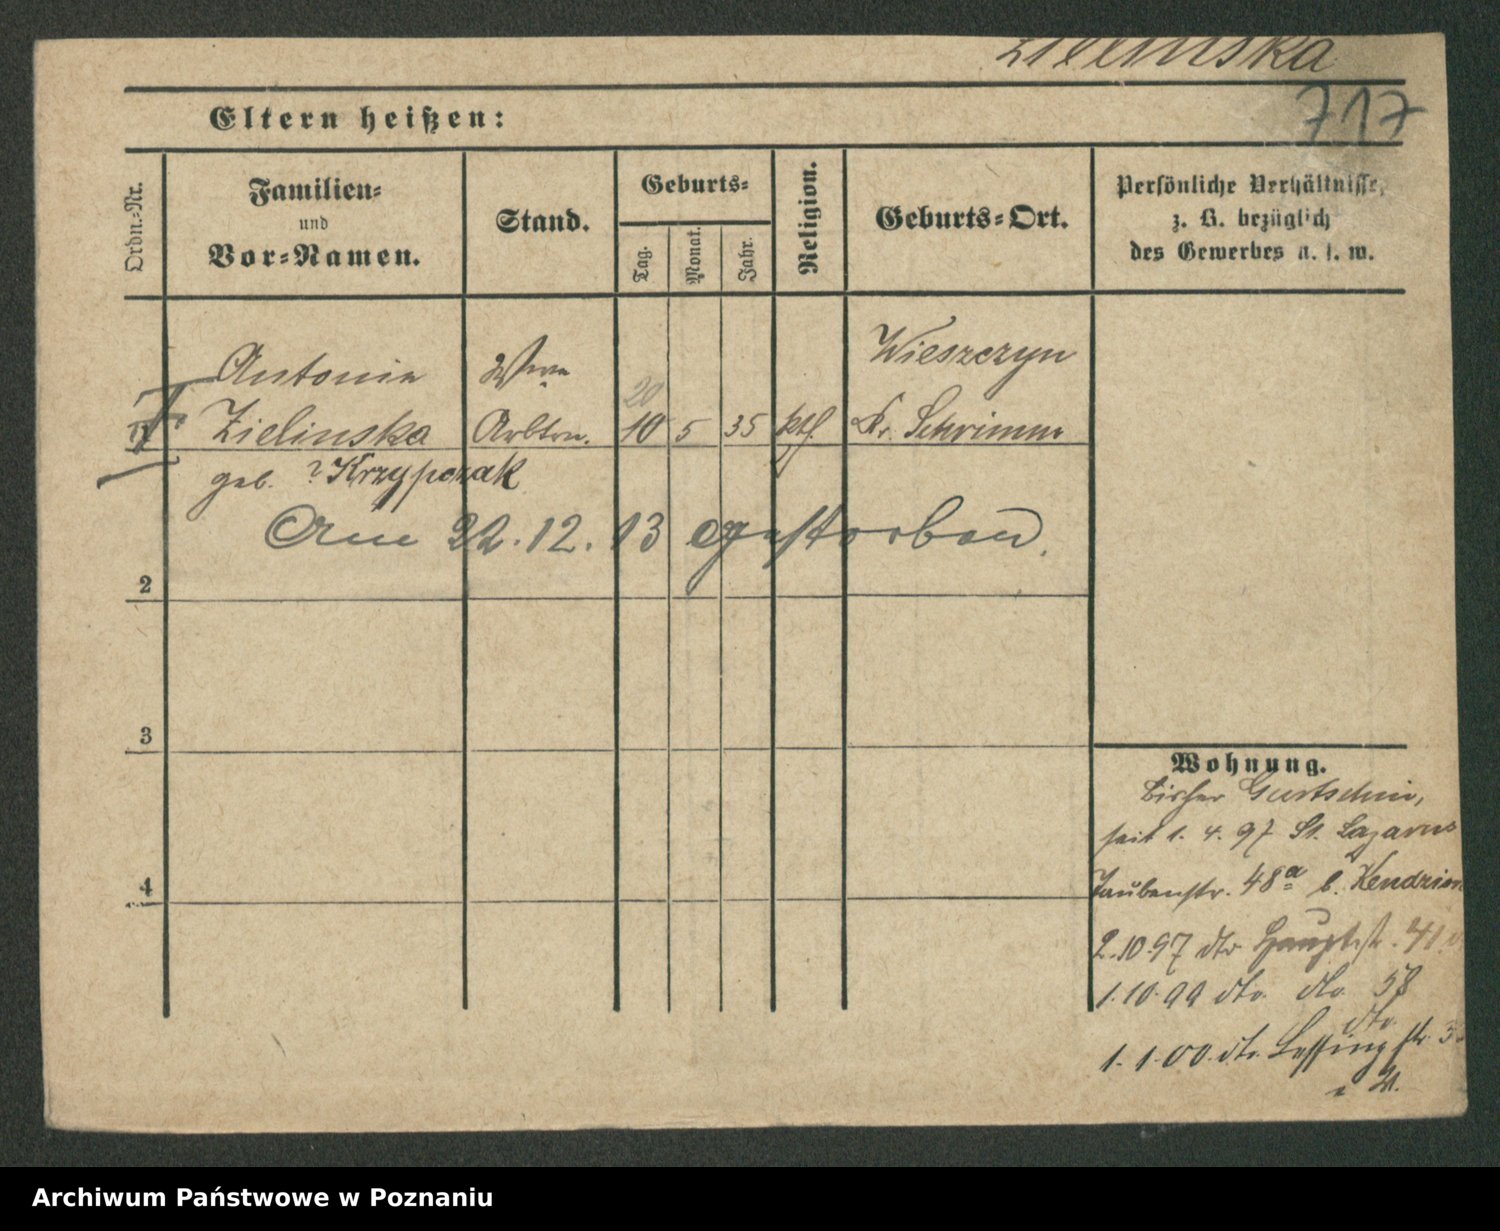 Zielinska
717
Eltern heißen:
Ordn.-Nr.
Familien-
und
Vor-Namen.
Stand.
Geburts-
Tag.
Monat.
Jahr.
Religion.
Geburts-Ort.
Persönliche Verhältnisse,
z. B. bezüglich
des Gewerbes u. s. w.
Antonie Wwe Wieszczyn
20
Zielinska Arbtrn. 10 5 35 kth. Kr. Schrimm
geb. ? Krzypczak
Am 22.12.13 gestorben.
2
3
4
Wohnung.
bisher Gurtschin,
seit 1. 4. 97 St. Lazarus
Taubenstr. 48a b. Kendzion
2.10.97 dto Hauptstr. 41
1.10.99 dto. dto. 58
dto
1.1.00. dto. Lessingstr.